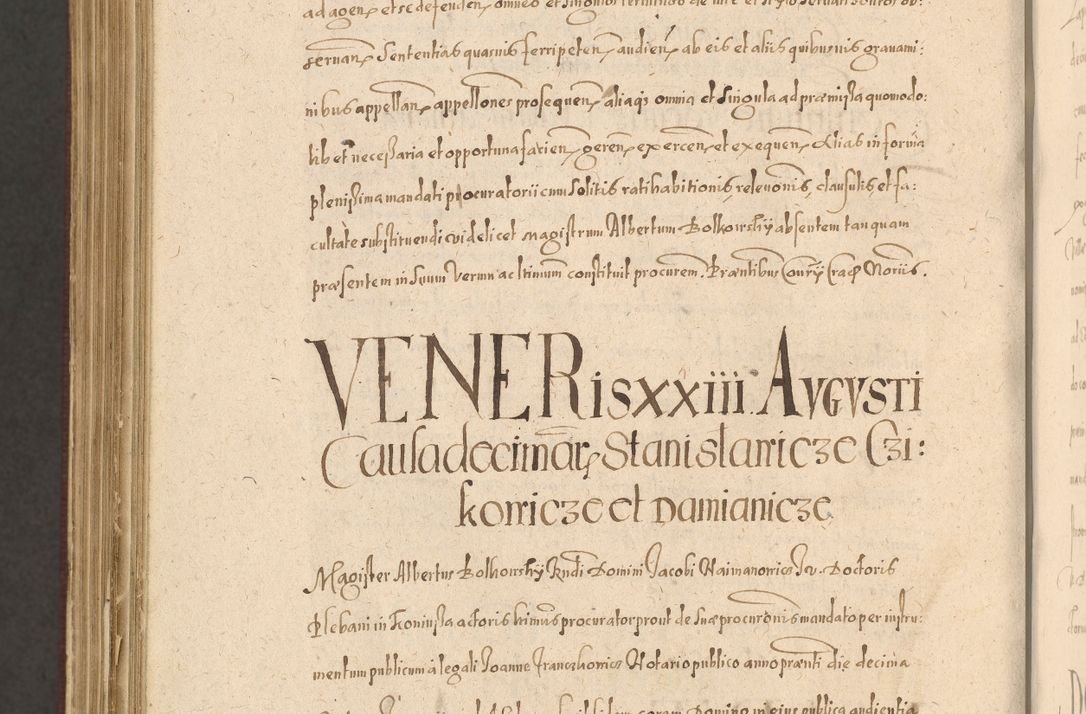 ad agen et se defenden omneo et singulos terminos de iure et stylo servari solitos ob:
servan Sententias quasvis ferri peten audien ab eis et aliis quibusvis gravami:
nibus appellan appellones prosequen aliaqз omnia et singula ad præmissa quomodo:
libet necessaria et opportuna facien geren exercen et exequen Alias in forma
plenissima mandati procuratorii cum solitis ratihabitionis, relevonis, clausulis et fa:
cultate substituendi videlicet Magistrum Albertum Bolkowskÿ absentem tanquam
præsentem in suum verum ac ltimum constituit procurem. Præntibus Courÿ Crac Noriis.
VENERis xxiii. AVGVSTI
Causa decimar Stanislawicze Czi:
kowicze et Damianicze
Magister Albertus Bolhowskÿ Rndi Domini Jacobi Naimanowics Jv. Doctoris
Plebani in Koniusa actoris ltimus procurator prout de suæ procuronis mandato per instru:
mentum publicum à legali Joanne Franczkowics Notario publico anno prænti die decima
coram Domino in eius publica audientia